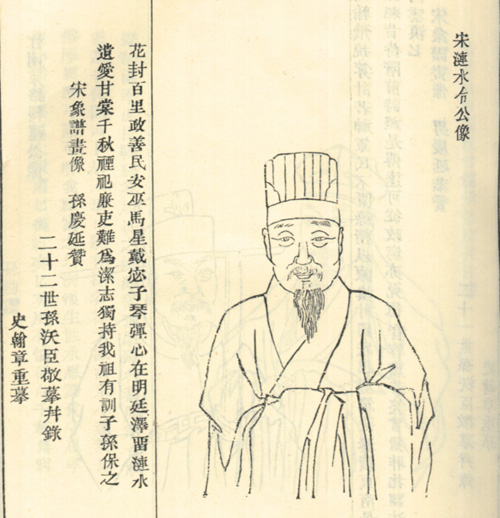 宋漣水令公像
花封百里政善民安巫馬星戴宓子琴彈心在明廷澤畱漣水
遺愛甘棠千秋禋祀廉吏難爲潔志獨持我祖有訓子孫保之
宋象譜畫像 孫慶延贊
二十二世孫沃臣敬摹幷錄
史翰章重摹